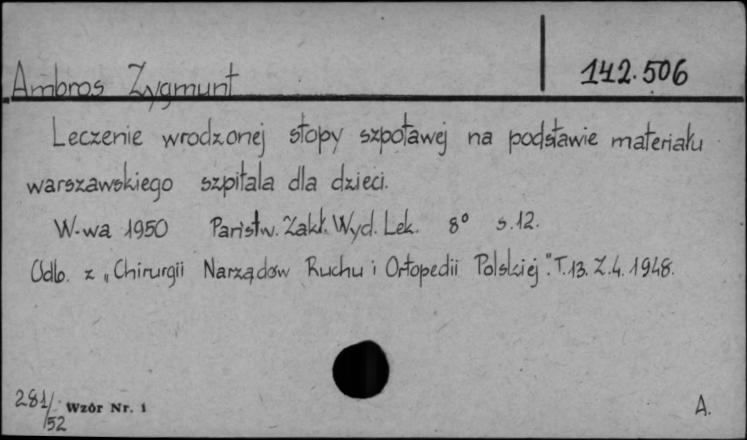 Ambros Zygmunt
142.506
Leczenie wrodzonej stopy szpotawej na podstawie materiału
warszawskiego szpitala dla dzieci.
W-wa 1950 Państw. Zakł. Wyd. Lek. 8° s. 12.
Odb. z „Chirurgii Narządów Ruchu i Ortopedii Polskiej". T. 13. Z. 4. 1948.
281/52 Wzór Nr. 1
A.